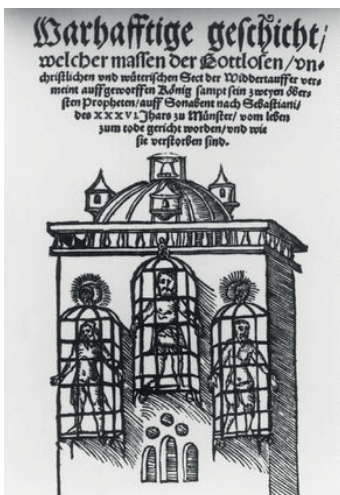 Warhafftige geschicht/
welcher massen der Gottlosen/ vn⸗
christlichen vnd wüterischen Sect der Widdertauffer ver⸗
meint auffgeworffen König sampt sein zweyen öber⸗
sten Propheten/ auff Sonabent nach Sebastiani/
des XXXVI. Jhars zu Münster/ vom leben
zum tode gericht worden/ vnd wie
sie verstorben sind.